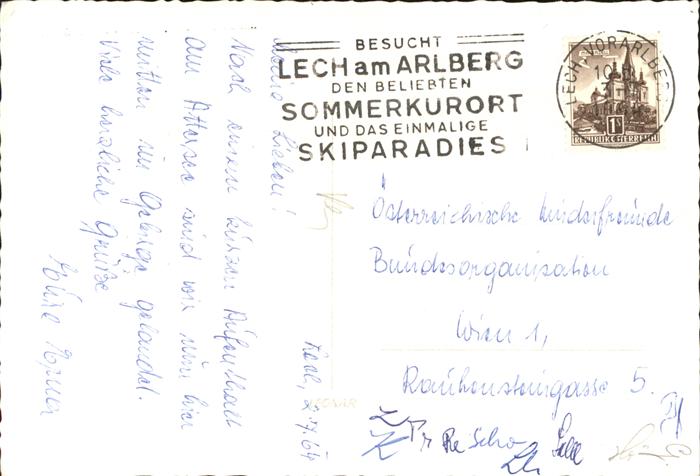 BESUCHT
LECH am ARLBERG
DEN BELIEBTEN
SOMMERKURORT
UND DAS EINMALIGE
SKIPARADIES
LECH VORARLBERG
1S
REPUBLIK ÖSTERREICH
Lech, 2.9.64
Meine Lieben!
Nach einem kurzen Aufenthalt
am Attersee sind wir nun hier
mitten im Gebirge gelandet.
Viele herzliche Grüße
Österreichische Kinderfreunde
Bundesorganisation
Wien 1,
Rauhensteingasse 5.